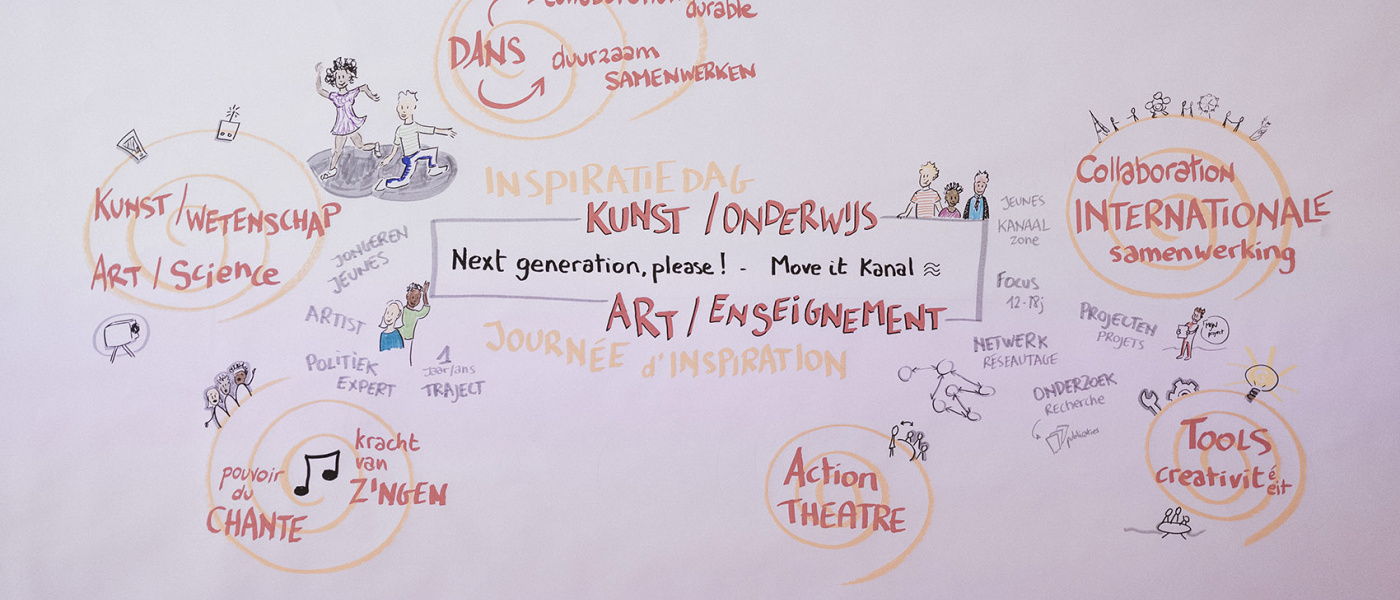 durable
DANS
duurzaam
SAMENWERKEN
KUNST / WETENSCHAP
ART / Science
JONGEREN
JEUNES
ARTIST
POLITIEK
EXPERT
1
Jaar/ans
TRAJECT
INSPIRATIEDAG
KUNST / ONDERWIJS
Next generation, please! - Move it Kanal
ART / ENSEIGNEMENT
JOURNÉE d'INSPIRATION
JEUNES
KANAAL
zone
Focus
12-18j
NETWERK
RÉSEAUTAGE
ONDERZOEK
Recherche
publicaties
Collaboration
INTERNATIONALE
samenwerking
PROJECTEN
PROJETS
pouvoir
du
CHANTE
kracht
van
ZINGEN
Action
THEATRE
TOOLS
creativité
eit